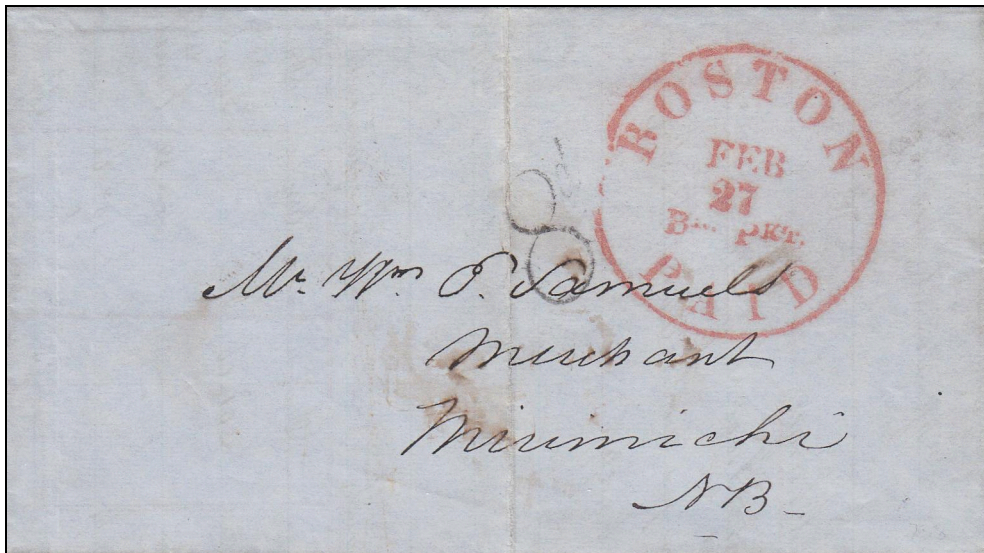 BOSTON
FEB
27
Br. PKT.
PAID
8d
Mr. Wm. P. Samuels
Merchant
Mirimichi
NB-